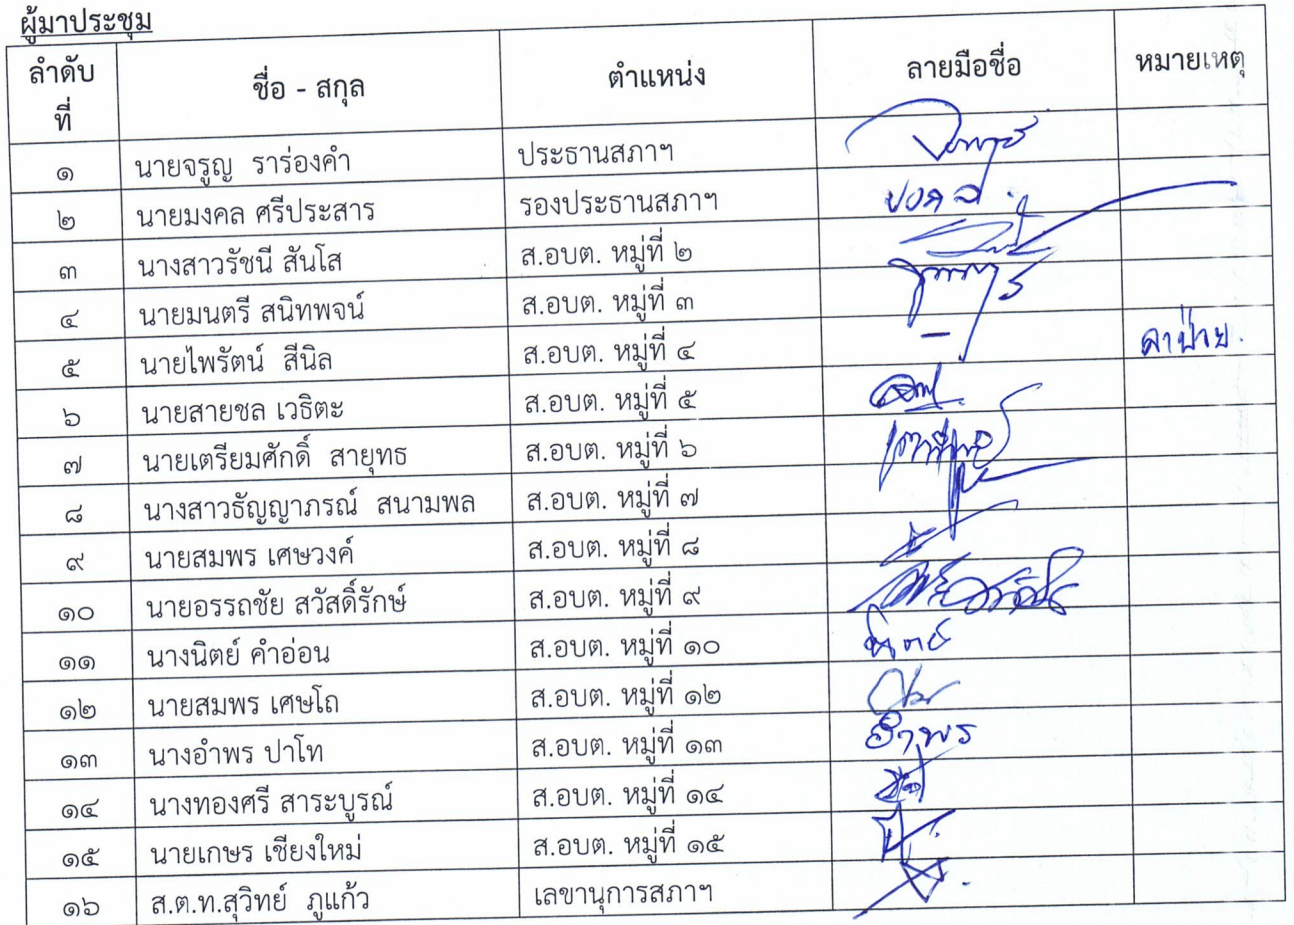 ผู้มาประชุม
ลำดับที่ ชื่อ - สกุล ตำแหน่ง ลายมือชื่อ หมายเหตุ
๑ นายจรูญ ราร่องคำ ประธานสภาฯ
๒ นายมงคล ศรีประสาร รองประธานสภาฯ
๓ นางสาวรัชนี สันโส ส.อบต. หมู่ที่ ๒
๔ นายมนตรี สนิทพจน์ ส.อบต. หมู่ที่ ๓
๕ นายไพรัตน์ สีนิล ส.อบต. หมู่ที่ ๔ - ลาป่วย.
๖ นายสายชล เวธิตะ ส.อบต. หมู่ที่ ๕
๗ นายเตรียมศักดิ์ สายุทธ ส.อบต. หมู่ที่ ๖
๘ นางสาวธัญญาภรณ์ สนามพล ส.อบต. หมู่ที่ ๗
๙ นายสมพร เศษวงค์ ส.อบต. หมู่ที่ ๘
๑๐ นายอรรถชัย สวัสดิ์รักษ์ ส.อบต. หมู่ที่ ๙
๑๑ นางนิตย์ คำอ่อน ส.อบต. หมู่ที่ ๑๐ นิตย์
๑๒ นายสมพร เศษโถ ส.อบต. หมู่ที่ ๑๒
๑๓ นางอำพร ปาโท ส.อบต. หมู่ที่ ๑๓ อำพร
๑๔ นางทองศรี สาระบูรณ์ ส.อบต. หมู่ที่ ๑๔
๑๕ นายเกษร เชียงใหม่ ส.อบต. หมู่ที่ ๑๕
๑๖ ส.ต.ท.สุวิทย์ ภูแก้ว เลขานุการสภาฯ